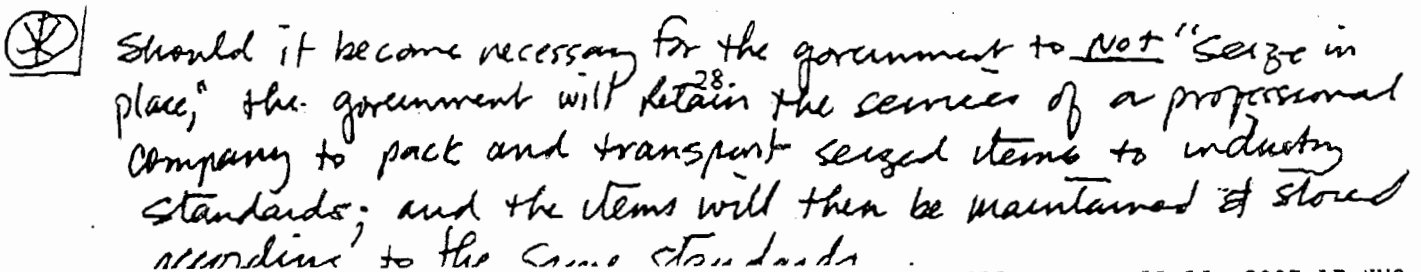 Should it become necessary for the government to Not "seize in
place," the government will retain the services of a professional
28.
company to pack and transport seized items to industry
standards; and the items will then be maintained & stored
according to the same standards.